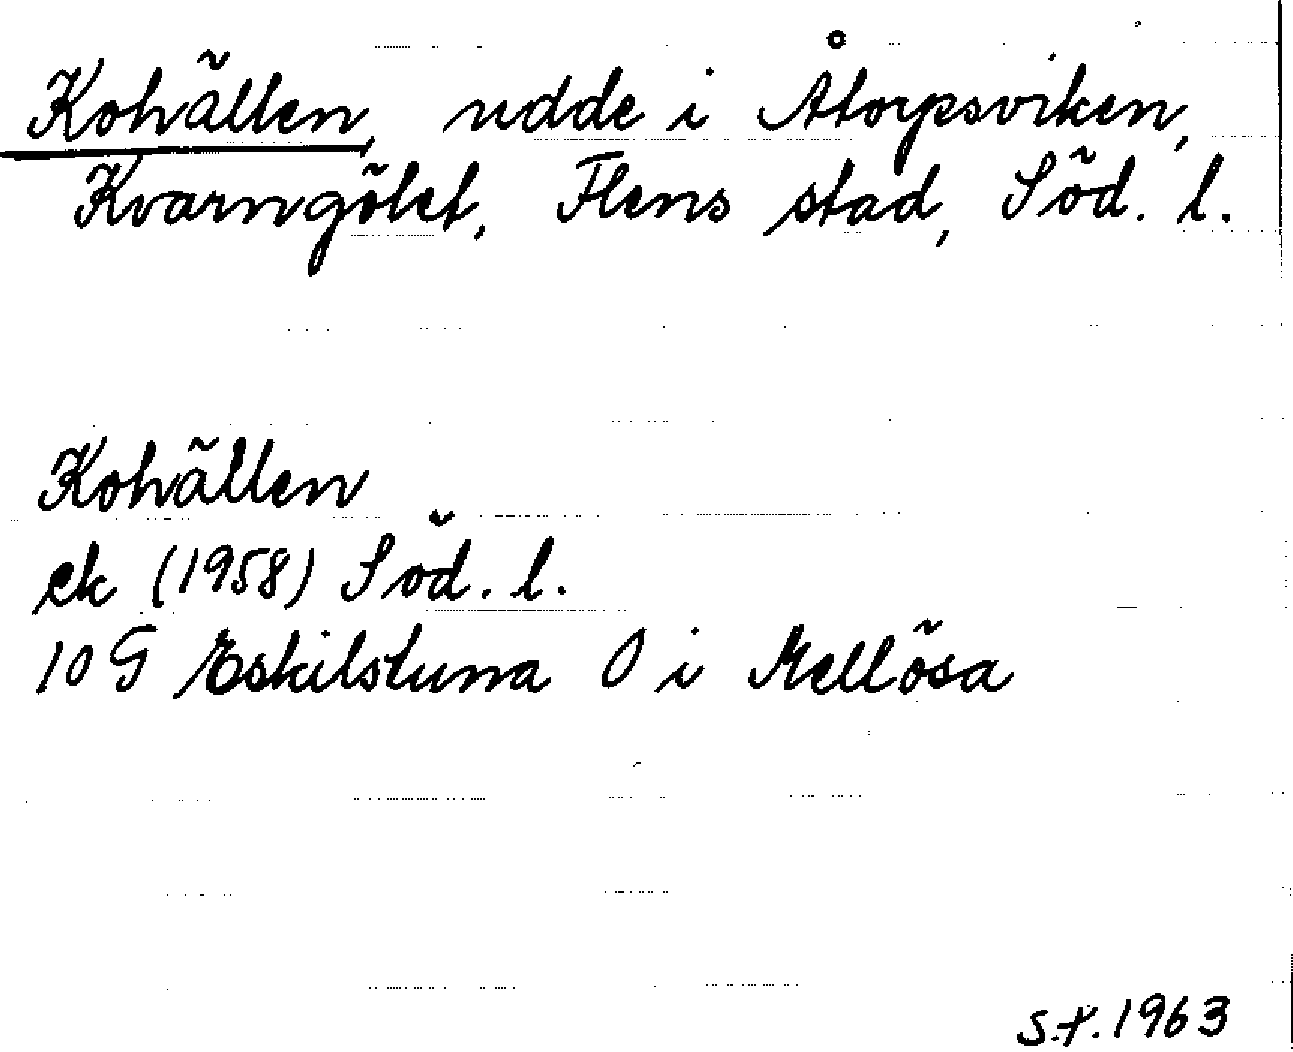 Kohällen, udde i Åtorpsviken,
Kvarngölet, Flens stad, Söd. l.
Kohällen
ek (1958) Söd. l.
10 G Eskilstuna O i Mellösa
S.F. 1963